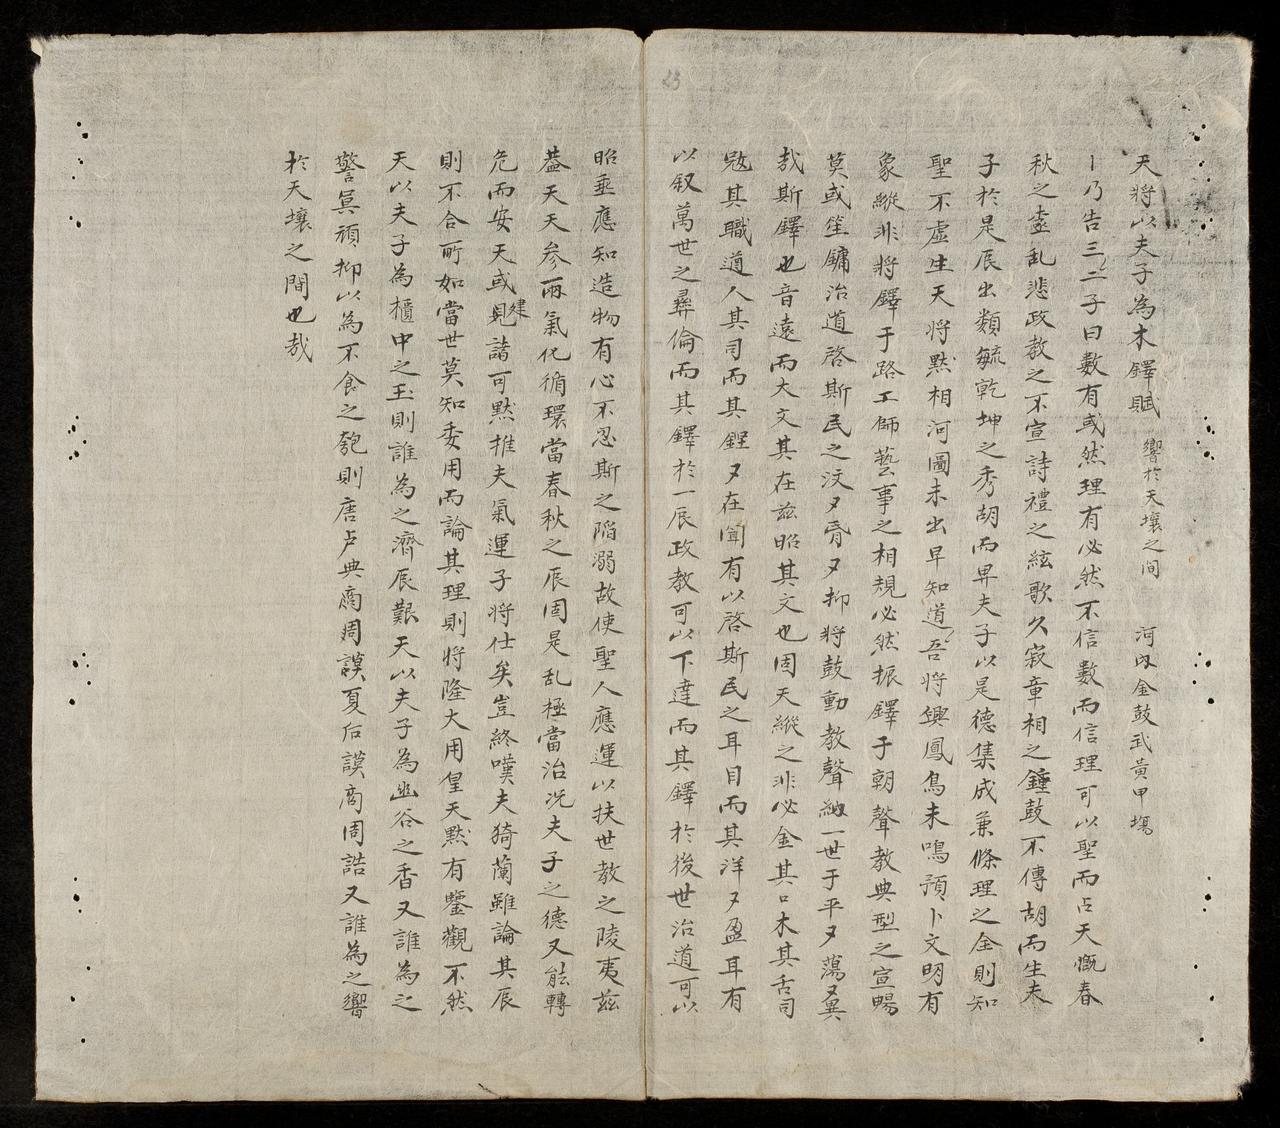 天將以夫子為木鐸賦 響於天壤之间 河内金鼓武黃甲塲
丨乃告三二子曰數有或然理有必然不信數而信理可以聖而占天慨春
秋之壼乱悲政教之不宣詩禮之絃歌久寂章相之鍾鼓不傳胡而生夫
子於是辰出類毓乾坤之秀胡而昇夫子以是德集成兼條理之全則知
聖不虛生天將默相河圖未出早知道吾將興鳳鳥未鳴預卜文明有
象縱非將鐸于路工師藝事之相規必然振鐸于朝聲教典型之宣暢
莫或笙鏞治道啓斯民之汶々胥々抑將鼓動教聲納一世于平々蕩々異
哉斯鐸也音遠而大文其在兹昭其文也固天縱之非必金其口木其舌司
冦其職道人其司而其鏗々在聞有以啓斯民之耳目而其洋々盈耳有
以叙萬世之彛倫而其鐸於一辰政教可以下達而其鐸於後世治道可以
昭垂應知造物有心不忍斯之陷溺故使聖人應運以扶世教之陵夷兹
葢天天参兩氣化循環當春秋之辰固是乱極當治况夫子之德又能轉
危而安天或見建諸可默推夫氣運子將仕矣豈終嘆夫猗蘭雖論其辰
則不合所如當世莫知委用而論其理則將隆大用皇天默有鑒觀不然
天以夫子為櫃中之玉則誰為之濟辰艱天以夫子為幽谷之香又誰為之
警冥頑抑以為不食之匏則唐卢典商周謨夏后謨商周誥又誰為之響
於天壤之間也哉
23